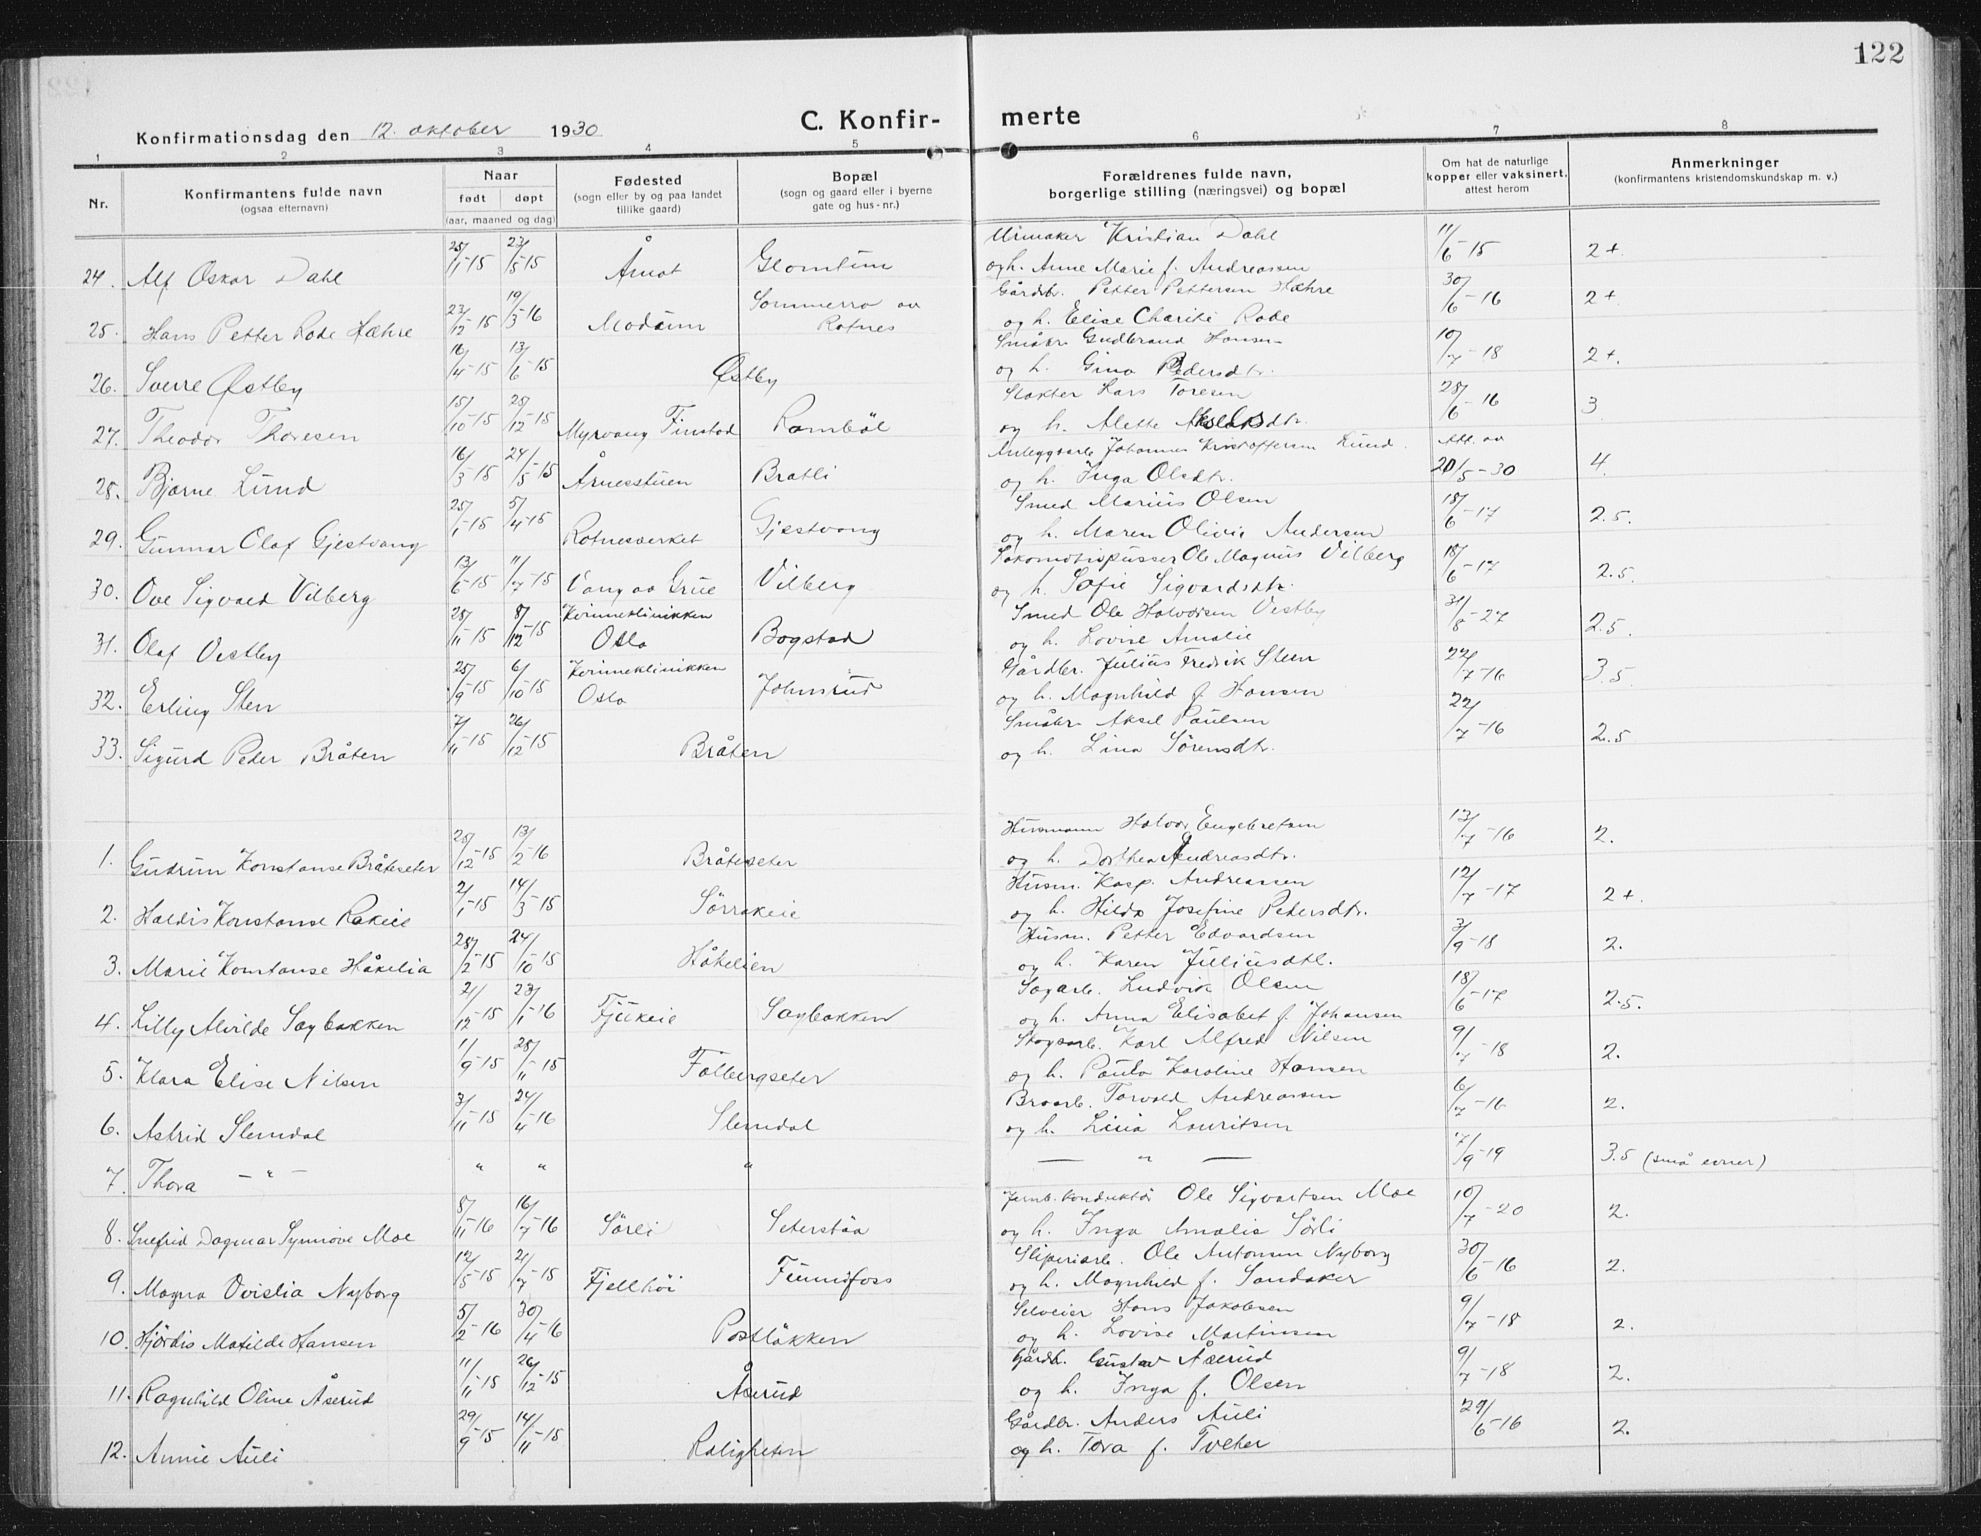 122
C. Konfir- merte
Konfirmationsdag den 12. oktober 1930
1 2 3 4 5 6 7 8
Nr.
Konfirmantens fulde navn
(ogsaa efternavn)
Naar
født døpt
(aar, maaned og dag)
Fødested
(sogn eller by og paa landet
tillike gaard)
Bopæl
(sogn og gaard eller i byerne
gate og hus-nr.)
Forældrenes fulde navn,
borgerlige stilling (næringsvei) og bopæl
Om hat de naturlige
kopper eller vaksinert,
attest herom
Anmerkninger
(konfirmantens kristendomskundskap m. v.)
Urmaker Kristian Dahl
24. Alf Oskar Dahl 25/1-15 23/5-15 Åmot Glomtun og h. Anne Marie f. Andreassen 11/6-15 2+
Gårdbr. Petter Pettersen Hæhre
25. Hans Petter Rode Hæhre 23/12-15 19/3-16 Modum Sommerro av Rotnes og h. Elise Charite Rode 30/6-16 2+.
Småbr. Gudbrand Hansen
26. Sverre Østby 16/4-15 13/6-15 Østby og h. Gina Pedersdtr. 10/7-18 2+.
Slakter Lars Toresen
27. Theodor Thoresen 15/10-15 25/12-15 Myrvang Finstad Rambøl og h. Alette 28/6-16 3
Anleggsarb. Johannes Kristoffersen Lund.
28. Bjarne Lund 16/3-15 24/5-15 Årnesstuen Bratli og h. Inga Olsdtr. Att. av 20/5-30 4.
Smed Marius Olsen
29. Gunnar Olaf Gjestvang 25/1-15 5/4-15 Rotnesverket Gjestvang og h. Maren Olivie Andersen 18/6-17 2.5.
Lokomotivpusser Ole Magnus Vilberg
30. Ove Sigvald Vilberg 13/6-15 11/7-15 Vang av Grue Vilberg og h. Sofie Sigvardsdtr. 18/6-17 2.5.
Smed Ole Halvorsen Vestby
31. Olaf Vestby 28/11-15 8/12-15 Kvinneklinikken Oslo Bogstad og h. Lovise Amalie 31/8-27 2.5.
Gårdbr. Julius Fredrik Steen
32. Erling Sten 25/9-15 6/10-15 Kvinneklinikken Oslo Johnsrud og h. Magnhild f. Hansen 22/7-16 3.5
Småbr. Aksel Paulsen
33. Sigurd Peder Bråten 7/11-15 26/12-15 Bråten og h. Lina Sørensdtr. 22/7-16 2.5
Husmann Halvor Engebretsen
1. Gudrun Konstanse Bråteseter 25/12-15 13/2-16 Bråteseter og h. Dorthea Andreasdtr. 13/7-16 2.
Husm. Kasp. Andreassen
2. Haldis Konstanse Rakeie 2/1-15 14/3-15 Sörrakeie og h. Hilda Josefine Pedersdtr. 12/7-17 2+.
Husm. Petter Edvardsen
3. Marie Konstanse Håkelia 28/2-15 24/10-15 Håkelien og h. Karen Juliusdtr. 3/9-18 2.
Sagarb. Ludvik Olsen
4. Lilly Alvilde Sagbakken 21/12-15 23/1-16 Fjukeie Sagbakken og h. Anna Elisabet f. Johansen 18/6-17 2.5.
Skogsarb. Karl Alfred Nilsen
5. Klara Elise Nilsen 1/9-15 28/11-15 Falbergseter og h. Paula Karoline Hansen 9/7-18 2.
Broarb. Torvald Andreassen
6. Astrid Slemdal 3/11-15 24/4-16 Slemdal og h. Lina Lauritsen 6/7-16 2.
7. Thora -"- " " " — " — 7/9-19 3.5 (små evner)
Jernb.konduktör Ole Sigvartsen Moe
8. Snefrid Dagmar Synnöve Moe 5/11-16 16/7-16 Sörli Seterstöa og h. Inga Amalia Sörli 10/7-20 2.
Sliperiarb. Ole Antonsen Nyborg
9. Magna Ovislia Nyborg 12/5-15 21/7-15 Fjellhöi Funnefoss og h. Magnhild f. Sandaker 30/6-16 2.
Selveier Hans Jakobsen
10. Hjördis Matilde Hansen 5/2-16 30/4-16 Postløkken og h. Lovise Martinsen 9/7-18 2.
Gårdb. Gustav Åserud
11. Ragnhild Oline Åserud 11/11-15 26/12-15 Åserud og h. Inga f. Olsen 9/7-18 2.
Gårdbr. Anders Auli
12. Annie Auli 29/9-15 14/11-15 Roligheten og h. Tora f. Tveter 29/6-16 2.